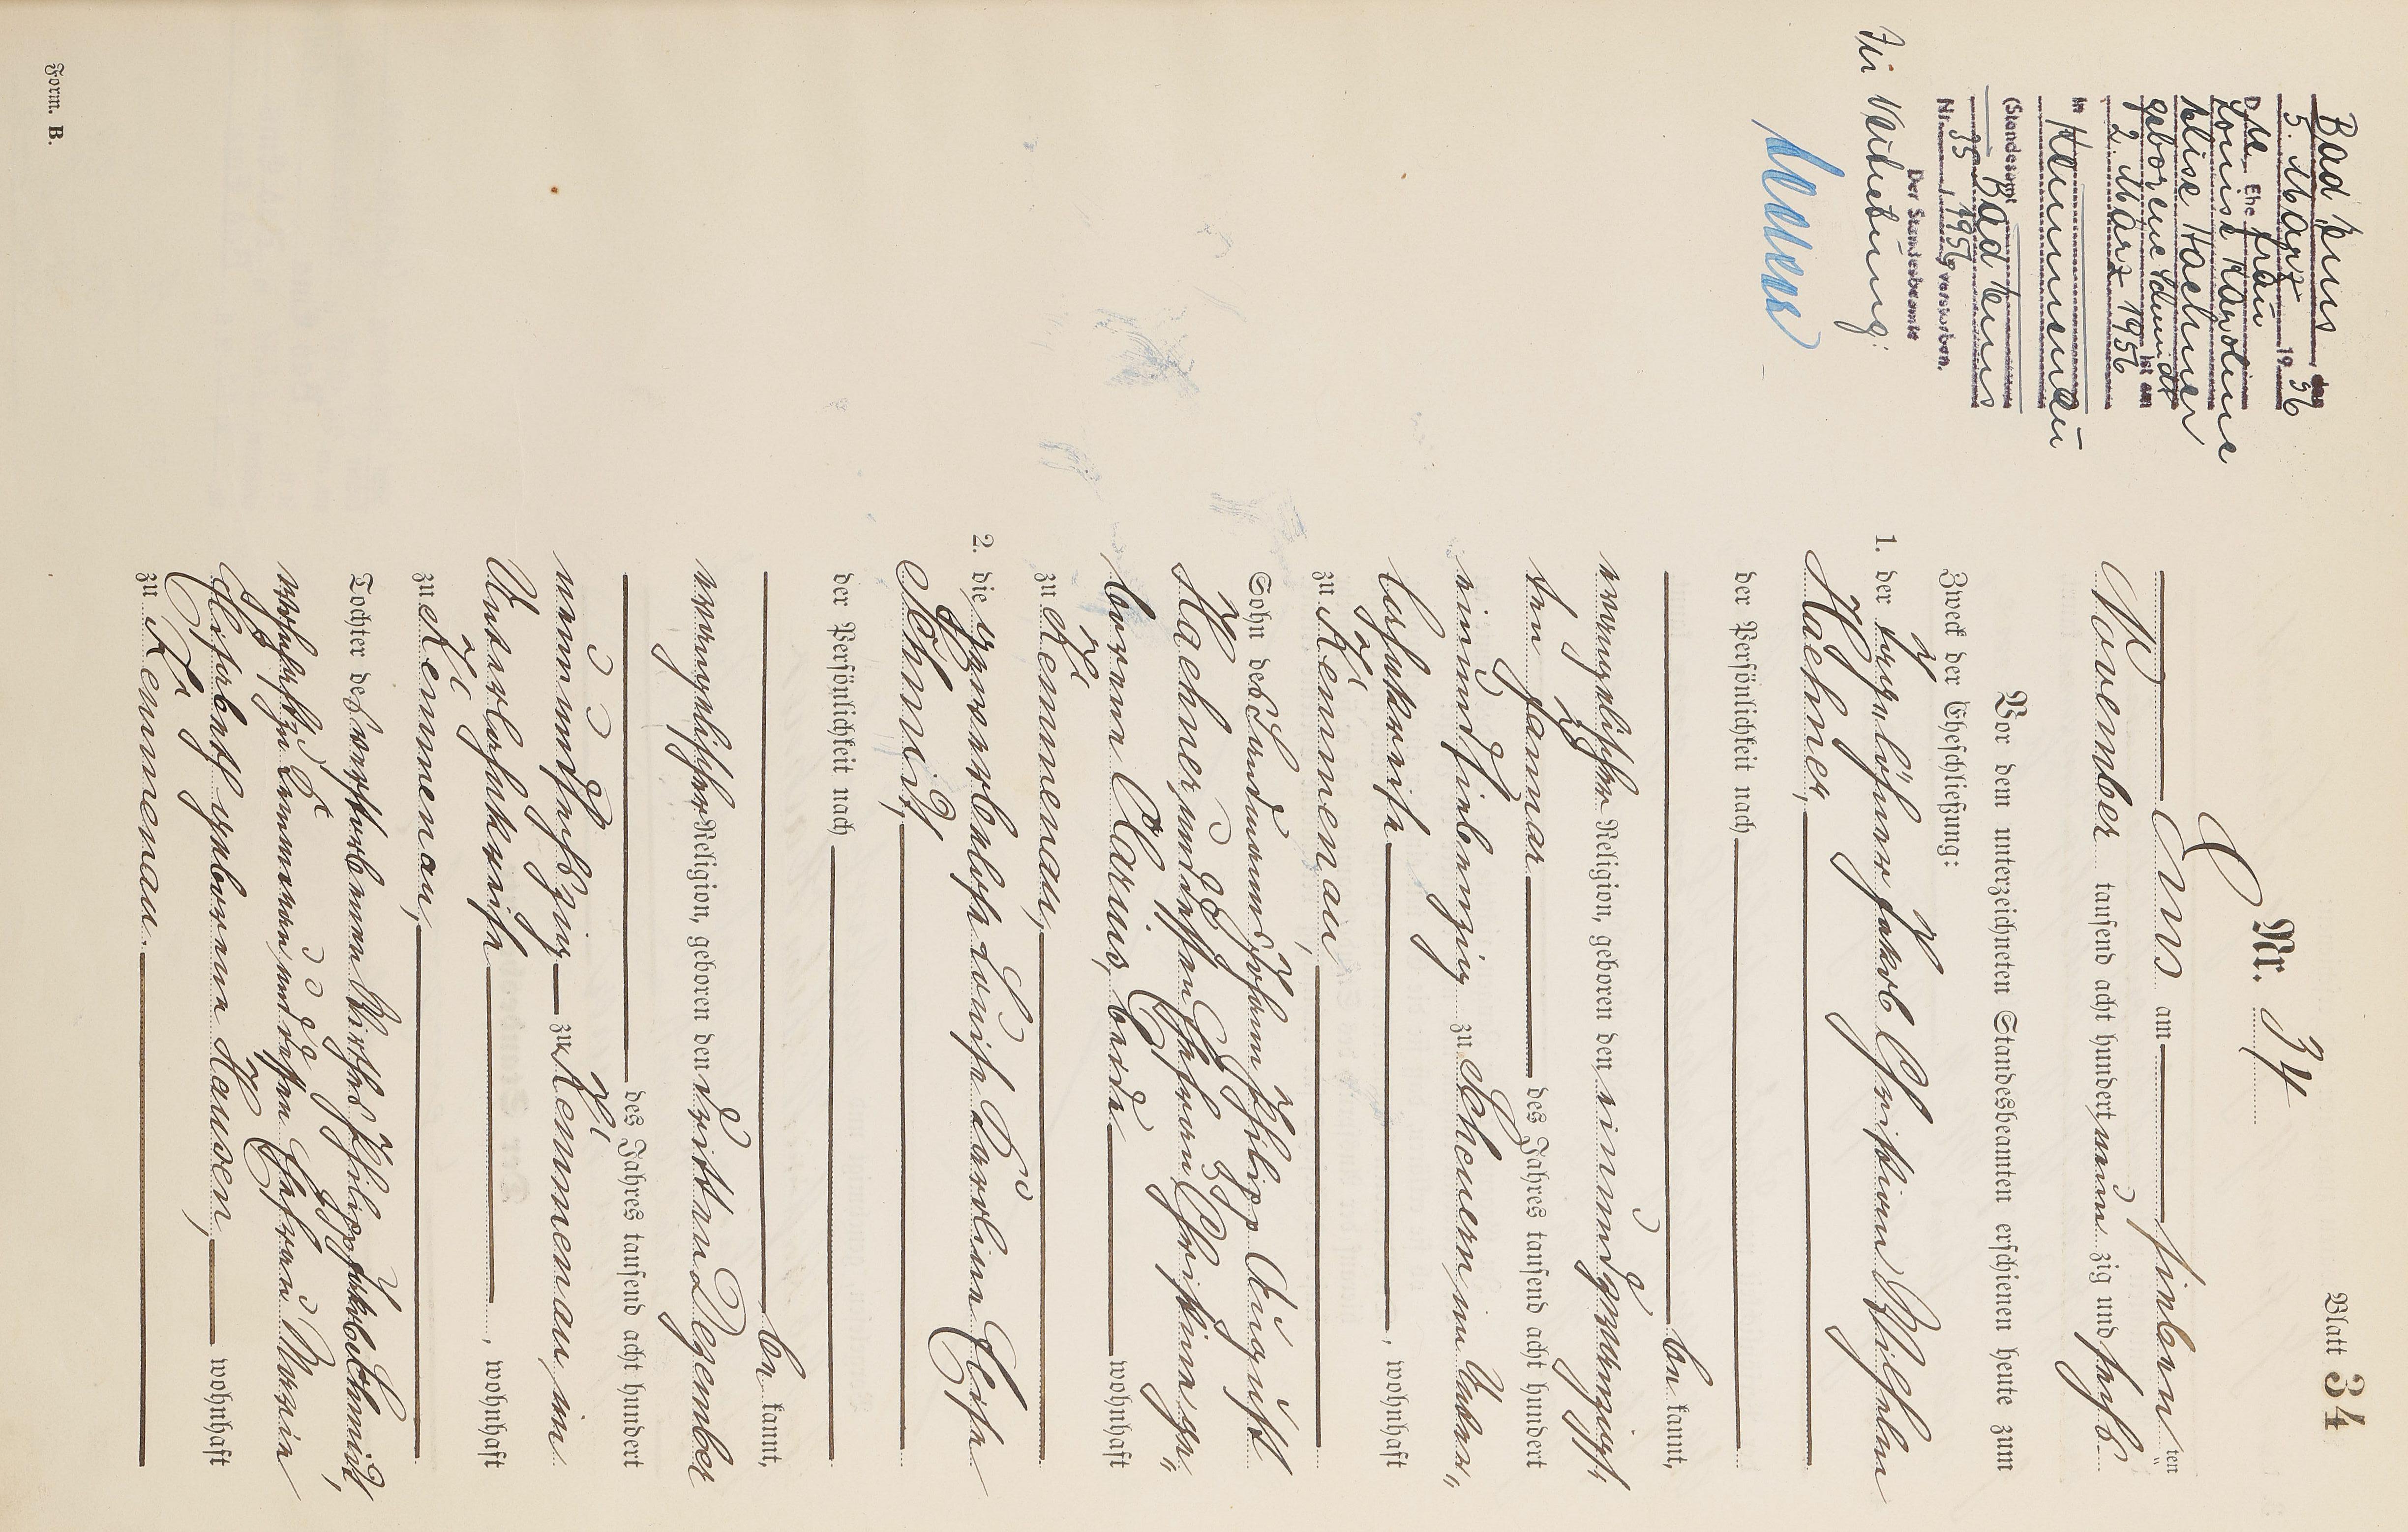 Blatt 34
Nr. 34
Ems am sieben ten
November tausend acht hundert neun zig und sechs
Vor dem unterzeichneten Standesbeamten erschienen heute zum
Zweck der Eheschließung:
1. der Tagelöhner Jakob Christian Wilhelm
Haehner,
der Persönlichkeit nach
be kannt,
evangelischer Religion, geboren den einundzwanzigs-
ten Januar des Jahres tausend acht hundert
einundsiebenzig zu Scheuern, im Unter-
lahnkreise, wohnhaft
zu Kemmenau
Sohn des Landmanns Johann Philipp August
Haehner, und dessen Ehefrau, Christiane ge-
borene Clarius, beide wohnhaft
zu Kemmenau,
2. die gewerbelose Louise Karoline Elise
Schmidt,
der Persönlichkeit nach
be kannt,
evangelischer Religion, geboren den dritten Dezember
des Jahres tausend acht hundert
neunundsechszig zu Kemmenau, im
Unterlahnkreise, wohnhaft
zu Kemmenau,
Tochter des verstorbenen Wirthes Philipp Jakob Schmidt,
wohnhaft zu Kemmenau, und dessen Ehefrau Maria
Elisabeth geborene Hausen, wohnhaft
zu Kemmenau.
Bad Ems den
5. März 1956
Die Ehefrau
Louise Karoline
Elise Haehner
geborene Schmidt
ist am
2. März 1956
in Kemmenau
(Standesamt Bad Ems
Nr. 35 / 1956 verstorben.
Der Standesbeamte
In Vertretung:
Form. B.